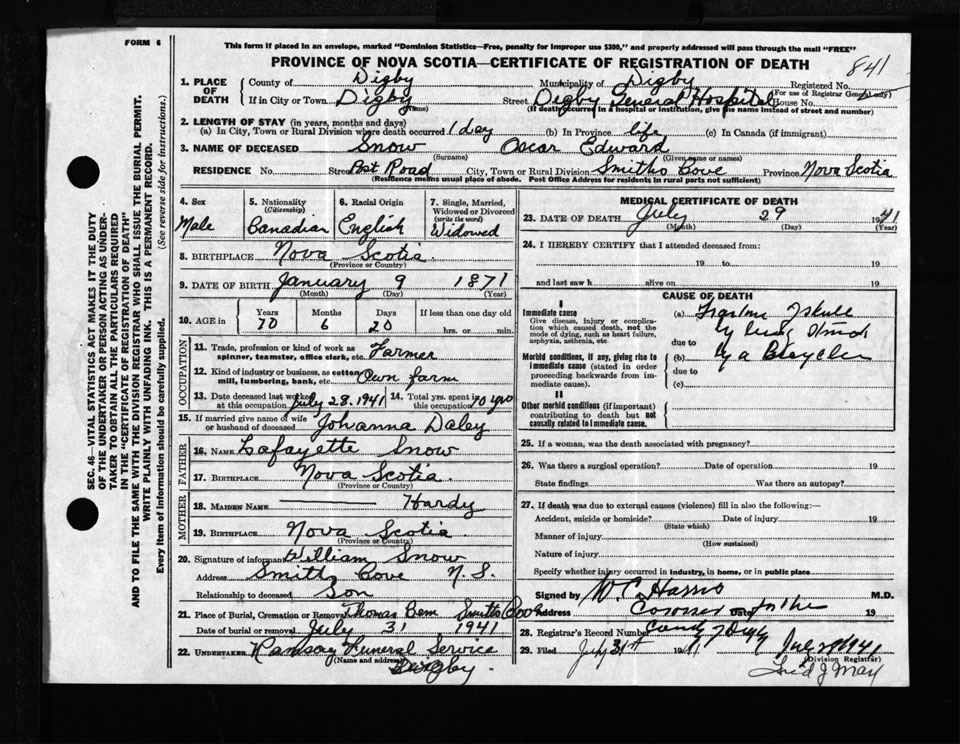 FORM 6
This form if placed in an envelope, marked "Dominion Statistics—Free, penalty for improper use $300," and properly addressed will pass through the mail "FREE"
PROVINCE OF NOVA SCOTIA—CERTIFICATE OF REGISTRATION OF DEATH
841
1. PLACE OF DEATH County of Digby Municipality of Digby Registered No.
(For use of Registrar General only)
If in City or Town Digby Street Digby General Hospital House No.
(Name) (If death occurred in a hospital or institution, give the name instead of street and number)
2. LENGTH OF STAY (in years, months and days)
(a) In City, Town or Rural Division where death occurred 1 day (b) In Province life (c) In Canada (if immigrant)
3. NAME OF DECEASED Snow Oscar Edward
(Surname) (Given name or names)
RESIDENCE No. Street Post Road City, Town or Rural Division Smiths Cove Province Nova Scotia
(Residence means usual place of abode. Post Office Address for residents in rural parts not sufficient)
4. Sex Male
5. Nationality (Citizenship) Canadian
6. Racial Origin English
7. Single, Married, Widowed or Divorced (write the word) Widowed
8. BIRTHPLACE Nova Scotia
(Province or Country)
9. DATE OF BIRTH January 9 1871
(Month) (Day) (Year)
10. AGE in Years Months Days If less than one day old
70 6 20 hrs. or min.
OCCUPATION
11. Trade, profession or kind of work as spinner, teamster, office clerk, etc. Farmer
12. Kind of industry or business, as cotton mill, lumbering, bank, etc. Own farm
13. Date deceased last worked at this occupation July 28, 1941 14. Total yrs. spent in this occupation 40 yrs
15. If married give name of wife or husband of deceased Johanna Daley
FATHER
16. NAME Lafayette Snow
17. BIRTHPLACE Nova Scotia
(Province or Country)
MOTHER
18. MAIDEN NAME Hardy
19. BIRTHPLACE Nova Scotia
(Province or Country)
20. Signature of informant William Snow
Address Smiths Cove N.S.
Relationship to deceased Son
21. Place of Burial, Cremation or Removal Thomas Smiths Cove
Date of burial or removal July 31 1941
22. UNDERTAKER Ramsay Funeral Service
(Name and address) Digby
MEDICAL CERTIFICATE OF DEATH
23. DATE OF DEATH July 29 1941
(Month) (Day) (Year)
24. I HEREBY CERTIFY that I attended deceased from:
19 to 19
and last saw h alive on 19
CAUSE OF DEATH
I
Immediate cause
Give disease, injury or complication which caused death, not the mode of dying, such as heart failure, asphyxia, asthenia, etc.
(a) Skull
due to
Morbid conditions, if any, giving rise to immediate cause (stated in order proceeding backwards from immediate cause).
(b) Bicycle
due to
(c)
II
Other morbid conditions (if important) contributing to death but not causally related to immediate cause.
25. If a woman, was the death associated with pregnancy?
26. Was there a surgical operation? Date of operation 19
State findings Was there an autopsy?
27. If death was due to external causes (violence) fill in also the following:—
Accident, suicide or homicide? Date of injury 19
(State which)
Manner of injury
(How sustained)
Nature of injury
Specify whether injury occurred in industry, in home, or in public place
Signed by W. C. Harris M.D.
Address Coroner Date for the 19
28. Registrar's Record Number County
29. Filed July 31st 1941 July 1941
(Division Registrar)
Fred J May
SEC. 46—VITAL STATISTICS ACT MAKES IT THE DUTY
OF THE UNDERTAKER OR PERSON ACTING AS UNDERTAKER TO OBTAIN ALL THE PARTICULARS REQUIRED
IN THE "CERTIFICATE OF REGISTRATION OF DEATH"
AND TO FILE THE SAME WITH THE DIVISION REGISTRAR WHO SHALL ISSUE THE BURIAL PERMIT.
WRITE PLAINLY WITH UNFADING INK. THIS IS A PERMANENT RECORD.
Every item of information should be carefully supplied. (See reverse side for instructions.)